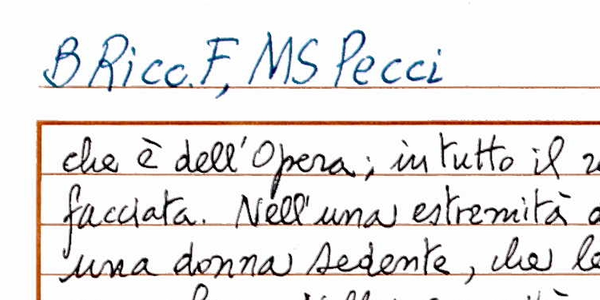 B Ricc. F, MS Pecci
che è dell'Opera; in tutto il
facciata. Nell'una estremità
una donna sedente, che